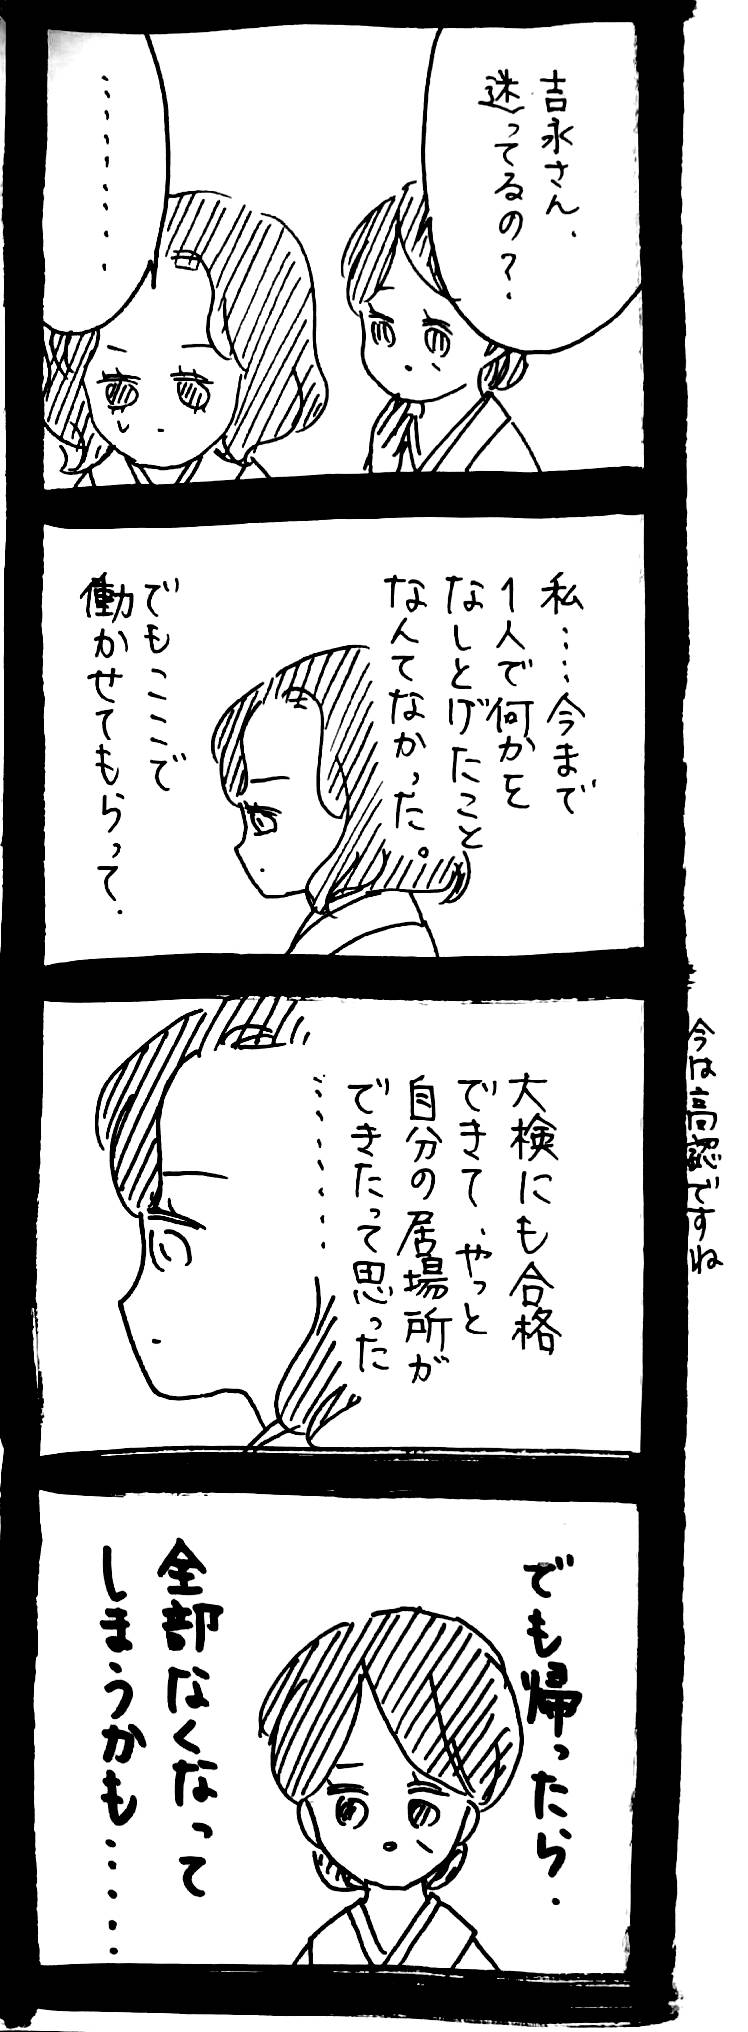 吉永さん、
迷ってるの?
………
私……今まで
1人で何かを
なしとげたこと
なんてなかった。
でもここで
働かせてもらって、
大検にも合格
できて、やっと
自分の居場所が
できたって思った
………
今は高認ですね
でも帰ったら、
全部なくなって
しまうかも……